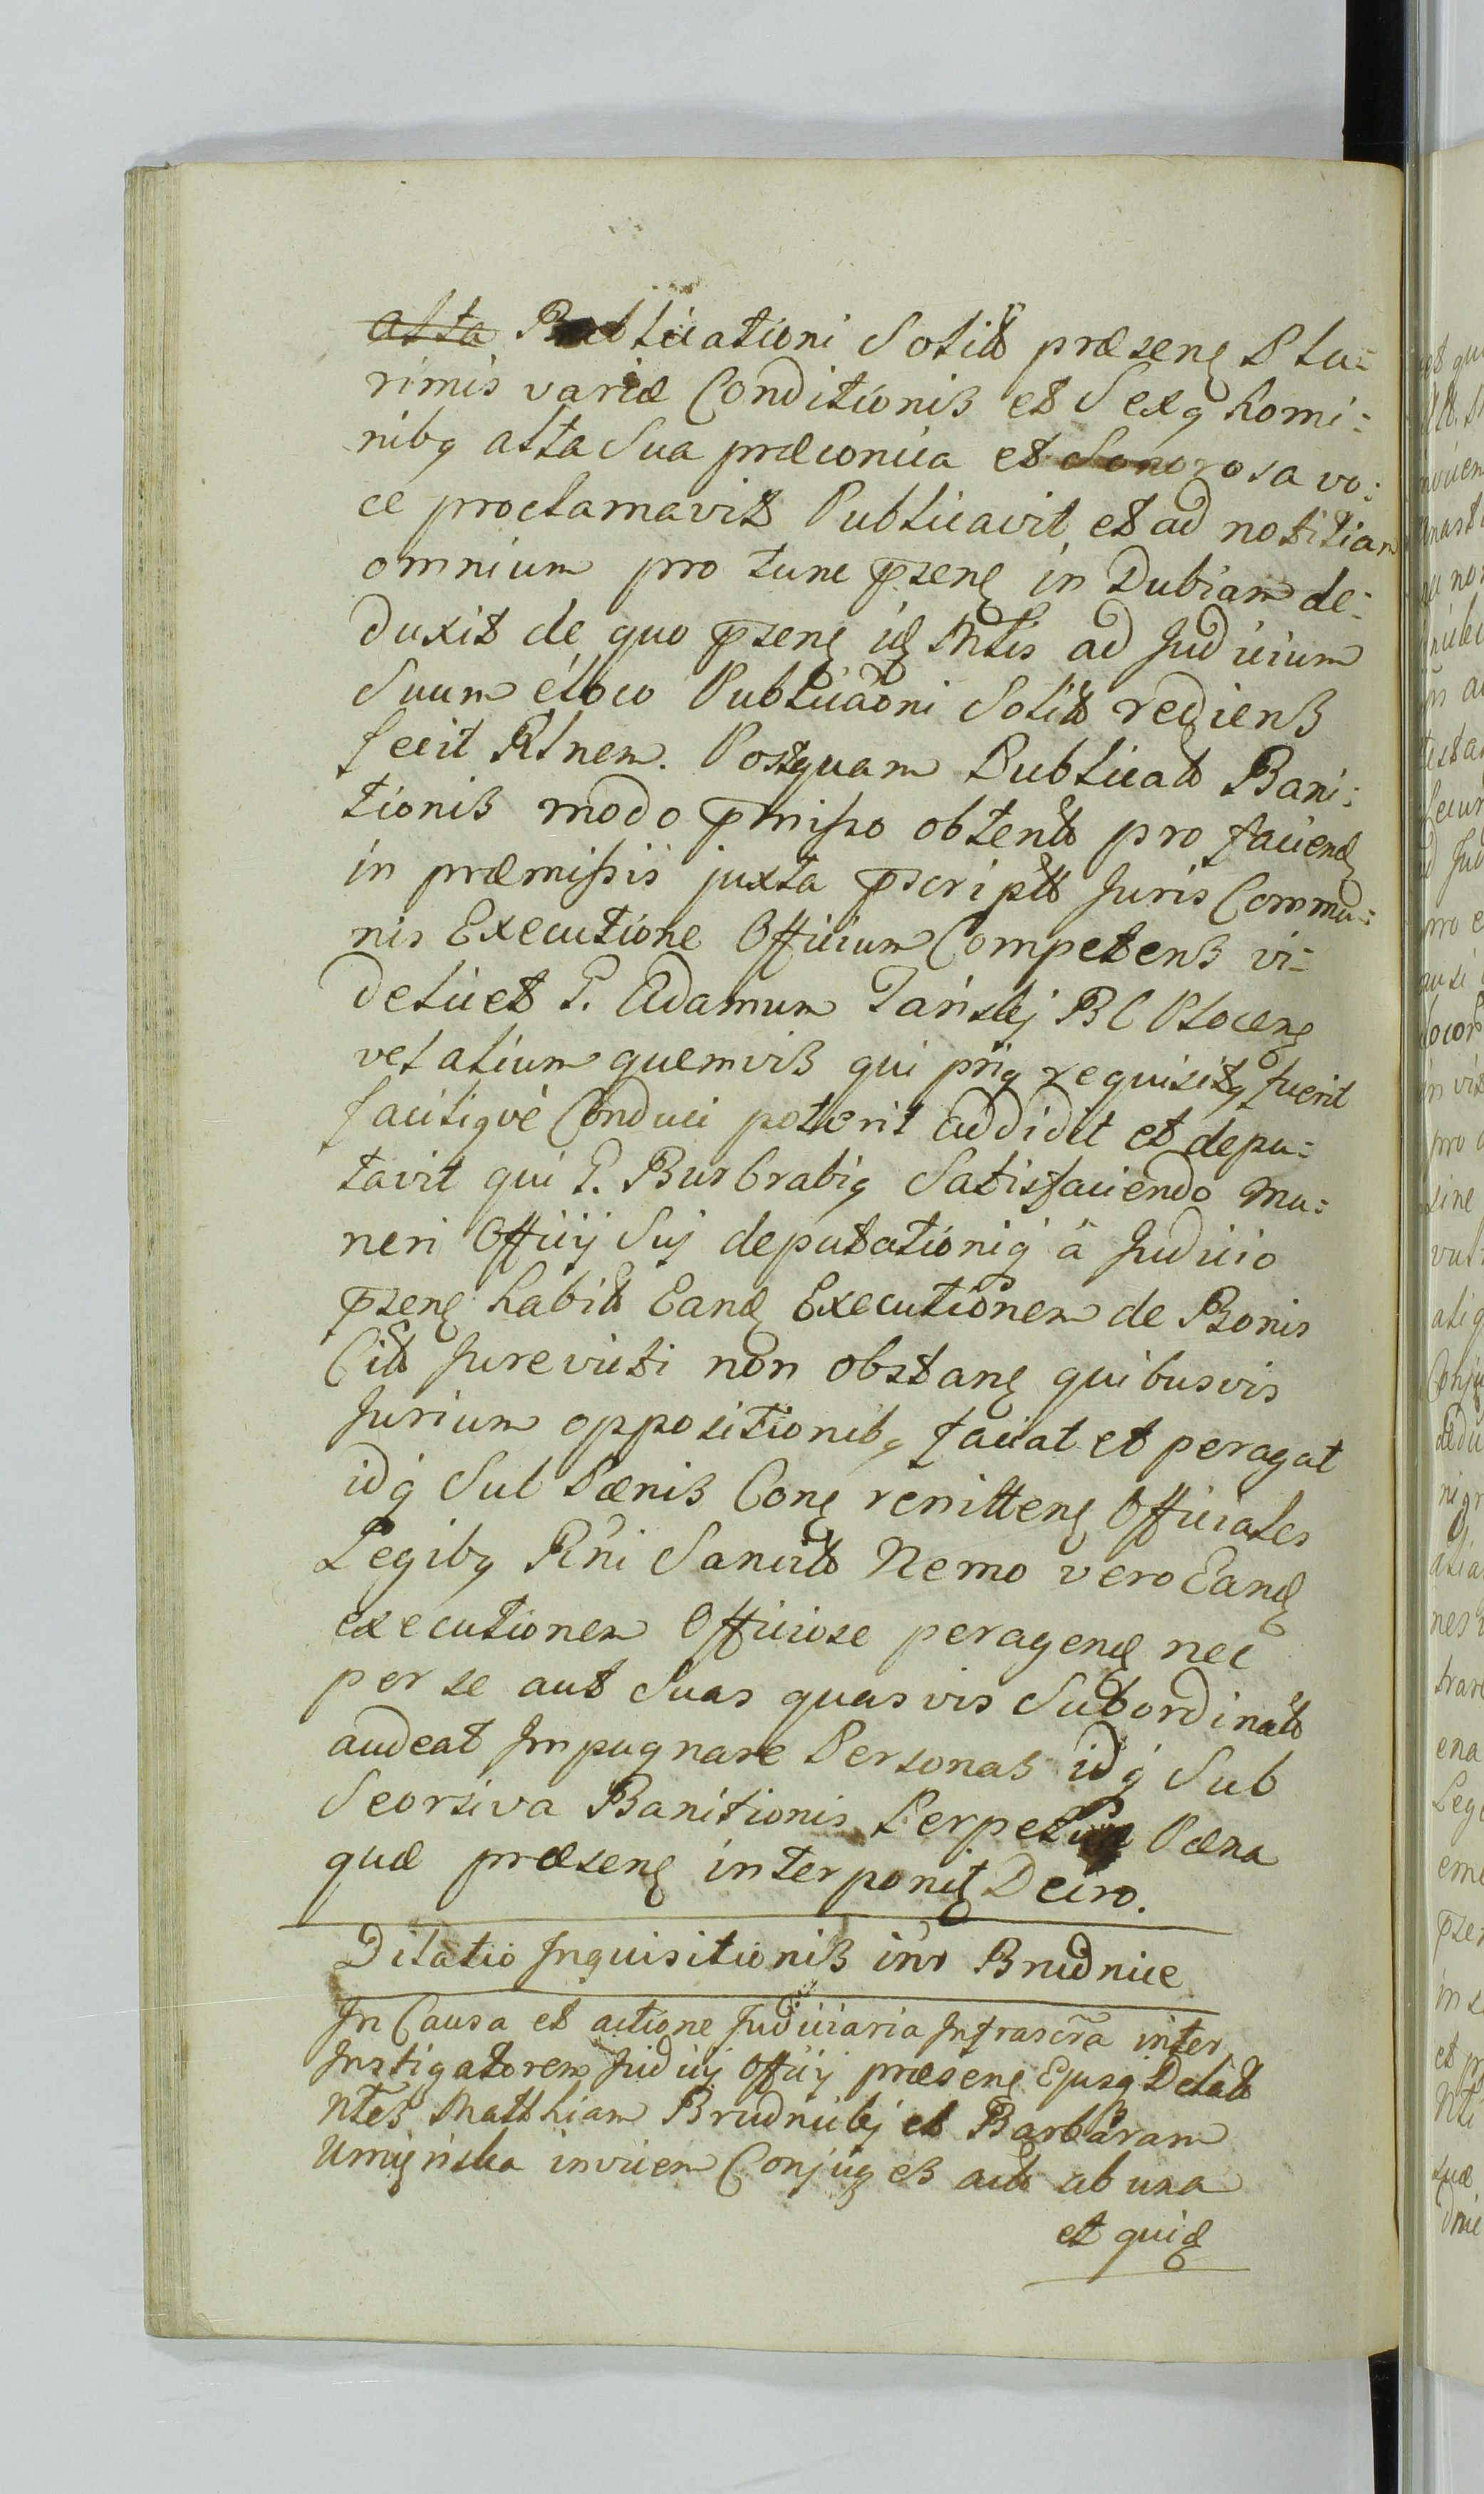 alta Publicationi Solitô præsenꝫ Plu=
rimis variæ Conditionis et Sexq homi=
nibq alta Sua præconica et Sonorosa vo=
ce proclamavit Publicavit, et ad notitiam
omnium pro tunc p̄senꝫ in Dubiam de=
duxit de quo p̄senꝫ idꝫ Mtlis ad Judicium
Suum é loco Publicãõni Solitô rediens
fecit Rlnem. Postquam Publicatô Bani=
tionis modo p̄misso obtentô pro faciendꝫ
in præmissis juxta p̄scriptô Juris Commu=
nis Executione Officium Competens vi=
delicet P. Adamum Tańskj BC Plocenꝫ
vel alium quemvis qui p̄riq requisitq fuerit
faciliqvè Conduci poterit addidit et depu=
tavit qui P. Burbrabiq Satisfaciendo mu=
neri Officij Sui deputationiq́ à Judicio
p̄senꝫ habitô Eandꝫ Executionem de Bonis
Citô Jurevicti non obstanꝫ quibusvis
Jurium oppositionibq faciat et peragat
idq́ Sub Pænis Conꝫ renittenꝫ Officiales
Legibq Rñi Sancitô Nemo vero Eandꝫ
executionem Officiose peragendꝫ nec
per se aut Suas quasvis Subordinatô
audeat Impugnare Personas idq́ Sub
Seorsiva Banitionis Perpetuæ Pæna
quæ præsenꝫ interponitꝫ Dciro.
Dilatio Inquisitionis intr Brudnice
In Causa et actione Judiciaria Infrascr̃a inter
Instigatorem Judicij Officij præsenꝫ Ejusq́ Delatô
Ntes Matthiam Brudnickj et Barbaram
Umięńska invicem Conjuges actô ab una
et quidꝫ